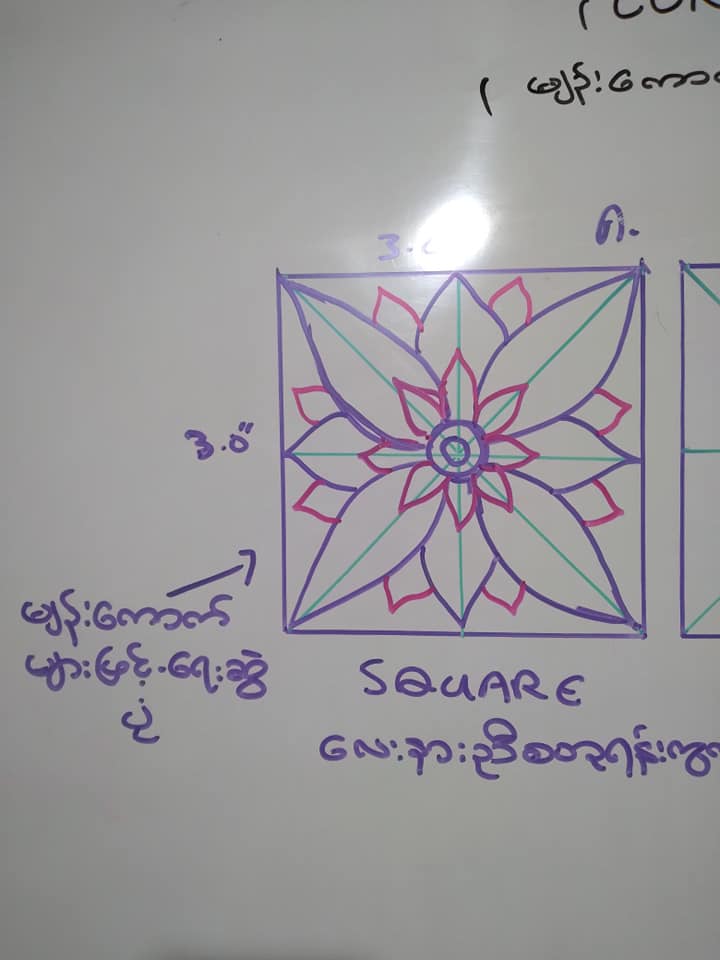 ( မျဉ်းကော
က.
3.0"
မျဉ်းကောက်
များဖြင့်.ရေးဆွဲ
ပုံ
SQUARE
လေးနားဉီစတုရန်းကွ